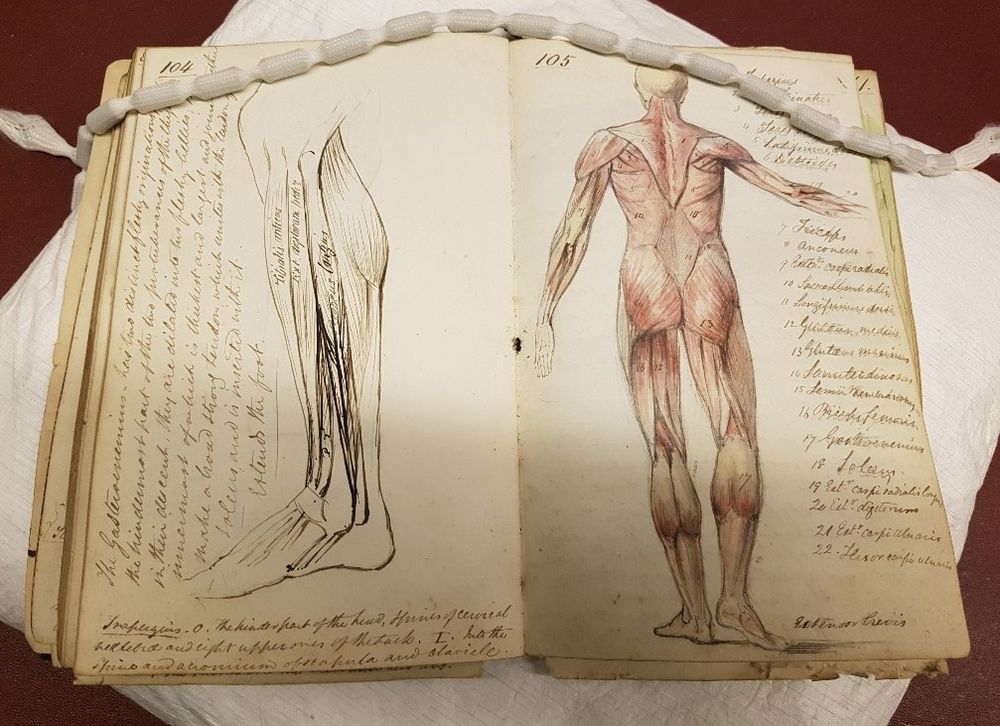 104
The Gasterocnemius. has two distinct fleshy origins
the hindermost part of the two protuberances of the
in their descent they are dilated into two fleshy bellies,
innermost of which is thickest and largest and
make a broad thin tendon which unites with the tendon
Soleus and is inserted with it.
Extends the foot.
Tibialis anticus
longus
Trapezius. O. the hinder part of the head, Spines of cervical
vertebræ and eight upper ones of the back. I. Into the
Spine and acromium of scapula and clavicle.
105
7 Triceps
8 Anconeus
9 Extr. carpi radialis
10 Sacrolumbalis
11 Longissimus dorsi
12 Glutæus medius
13 Glutæus maximus
14 Semitendinosus
15 Semimembranosus
16 Biceps femoris
17 Gastrocnemius
18 Soleus
19 Extr. carpi radialis longus
20 Extr. digitorum
21 Extr. carpi ulnaris
22. Flexor carpi ulnaris
Extensor Brevis